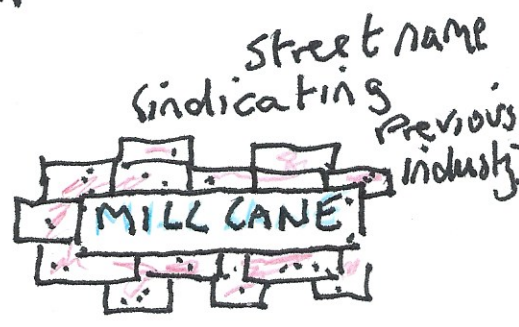 Street name
indicating
previous
industry
MILL LANE